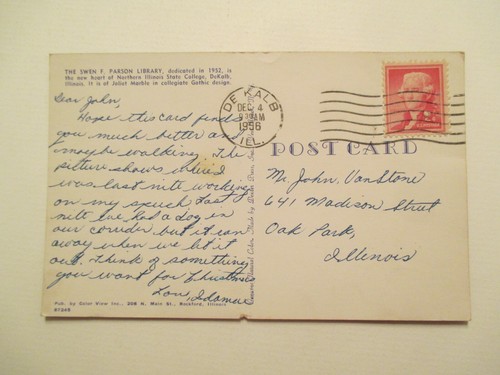 THE SWEN F. PARSON LIBRARY, dedicated in 1952, is
the new heart of Northern Illinois State College, DeKalb,
Illinois. It is of Joliet Marble in collegiate Gothic design.
Dear John,
Hope this card finds
you much better and
maybe walking. The
picture shows where I
was last nite working
on my speech. Last
nite we had a dog in
our but it ran
away when we let it
out. Think of something
you want for Christmas
Love,
DE KALB
DEC 4
AM
1956
ILL.
POST CARD
Mr. John VanStone
641 Madison Street
Oak Park,
Illinois
Pub. by Color View Inc., 206 N. Main St., Rockford, Illinois